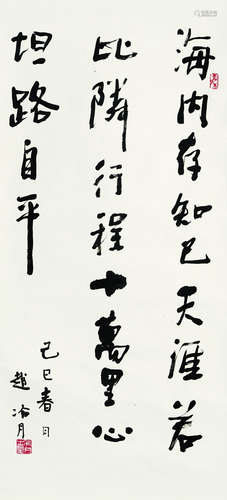 海内存知己天涯若
比隣行程十萬里心
坦路自平
己巳春日
趙冷月